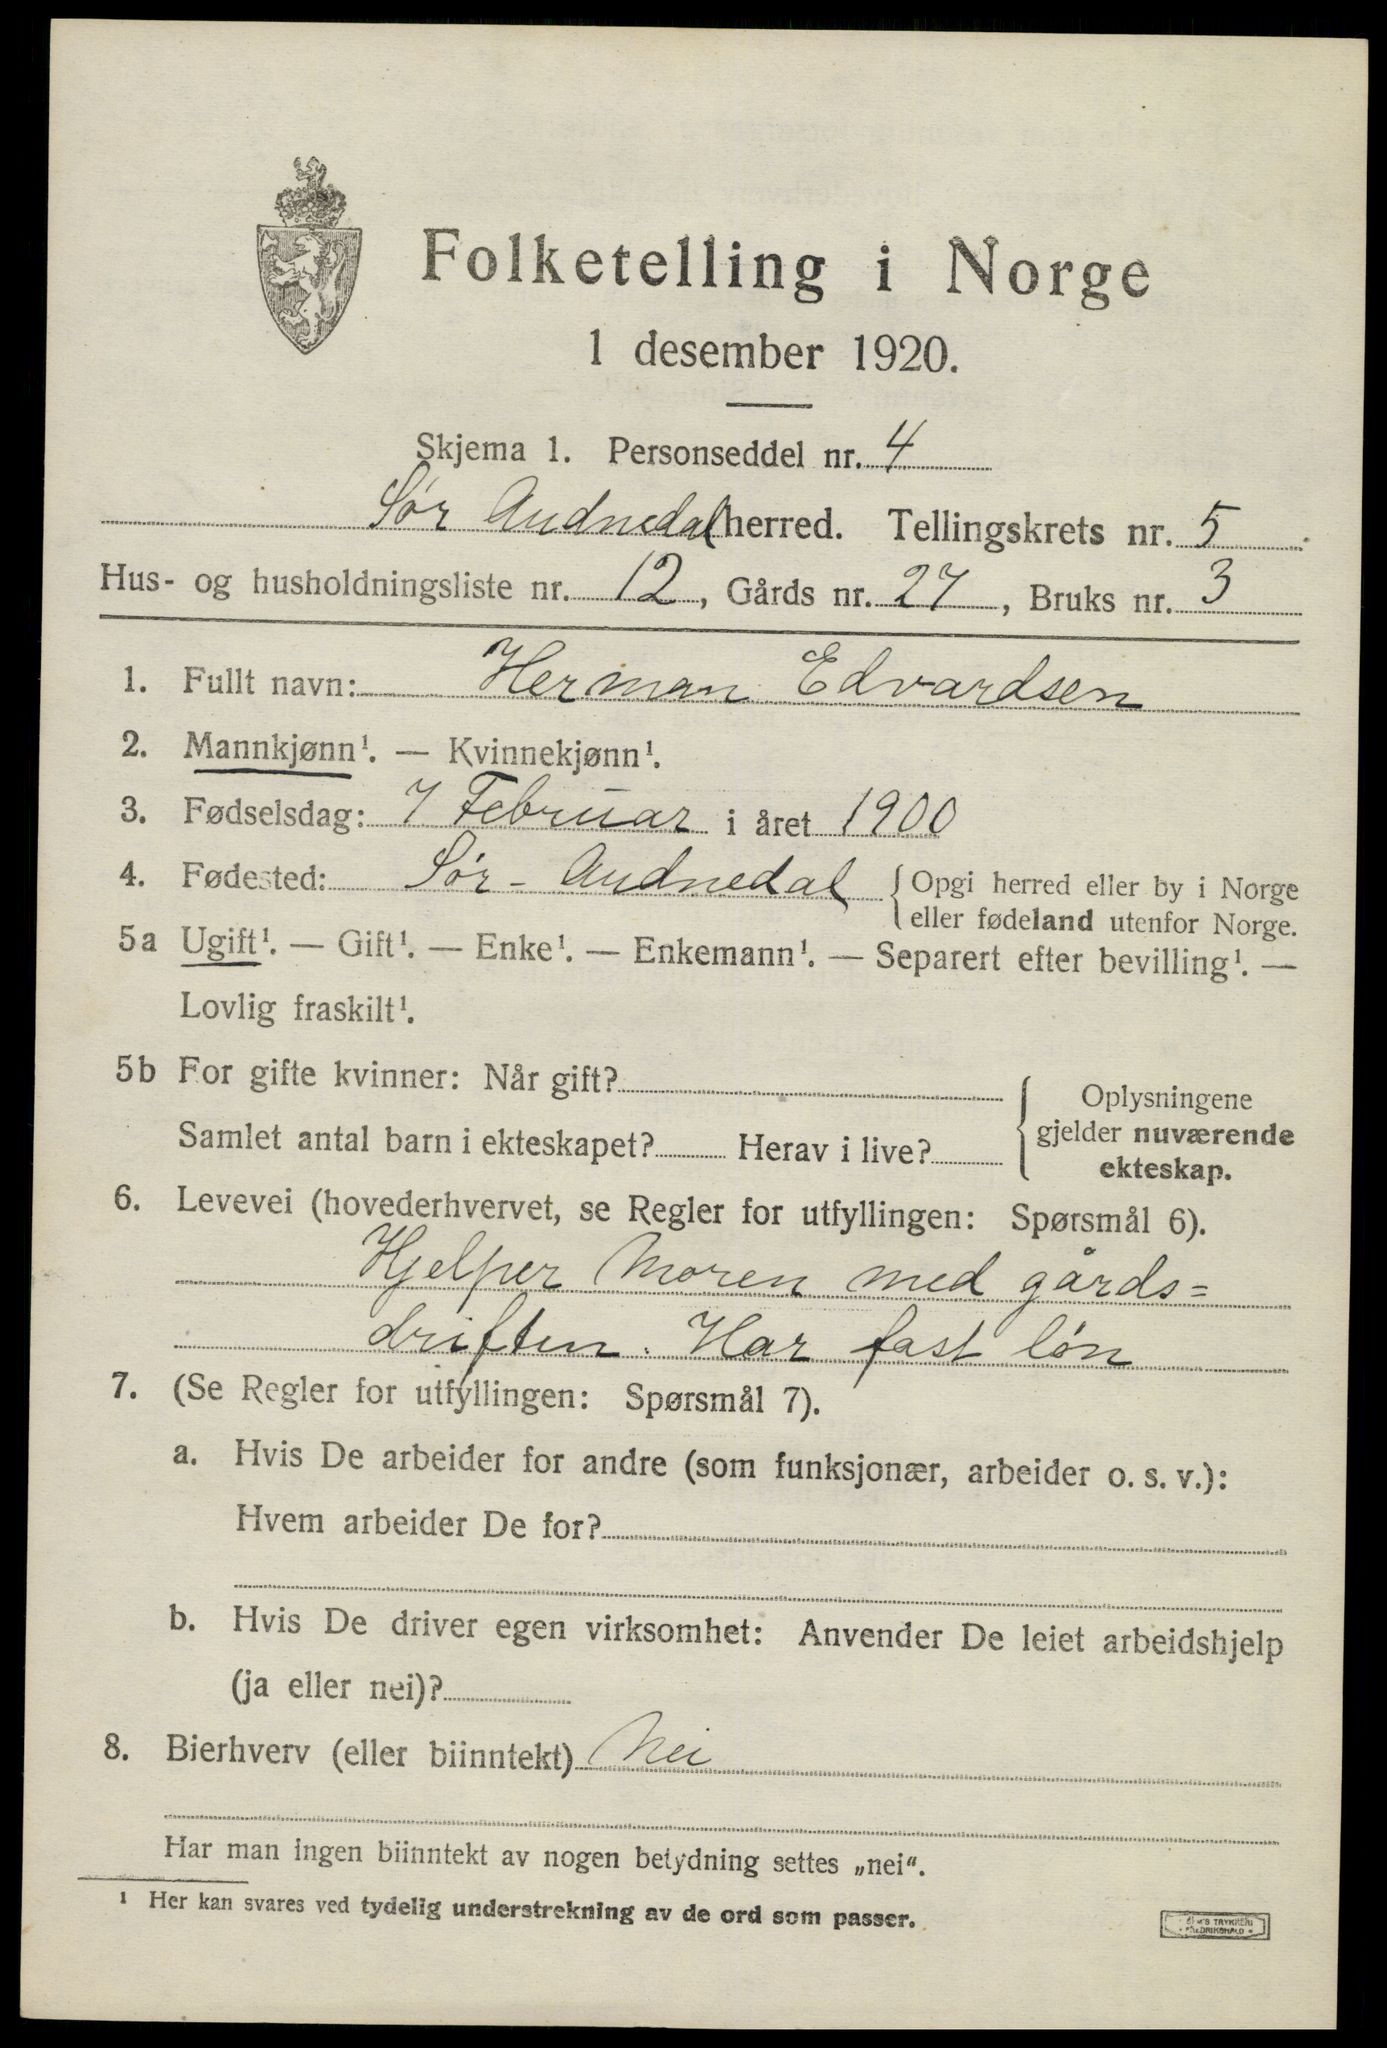 Folketelling i Norge
1 desember 1920.
Skjema 1. Personseddel nr. 4
Sør Audnedal herred. Tellingskrets nr. 5
Hus- og husholdningsliste nr. 12, Gårds nr. 27, Bruks nr. 3
1. Fullt navn: Herman Edvardsen
2. Mannkjønn¹. — Kvinnekjønn¹.
3. Fødselsdag: 7 Februar i året 1900
4. Fødested: Sør-Audnedal { Opgi herred eller by i Norge
eller fødeland utenfor Norge.
5a Ugift¹. — Gift¹. — Enke¹. — Enkemann¹. — Separert efter bevilling¹. —
Lovlig fraskilt¹.
5b For gifte kvinner: Når gift?
Samlet antal barn i ekteskapet? Herav i live?
Oplysningene
gjelder nuværende
ekteskap.
6. Levevei (hovederhvervet, se Regler for utfyllingen: Spørsmål 6).
Hjelper Moren med gårds=
driften. Har fast løn
7. (Se Regler for utfyllingen: Spørsmål 7).
a. Hvis De arbeider for andre (som funksjonær, arbeider o. s. v.):
Hvem arbeider De for?
b. Hvis De driver egen virksomhet: Anvender De leiet arbeidshjelp
(ja eller nei)?
8. Bierhverv (eller biinntekt) Nei
Har man ingen biinntekt av nogen betydning settes „nei“.
¹ Her kan svares ved tydelig understrekning av de ord som passer.
TRYKKERI
FREDRIKSHALD